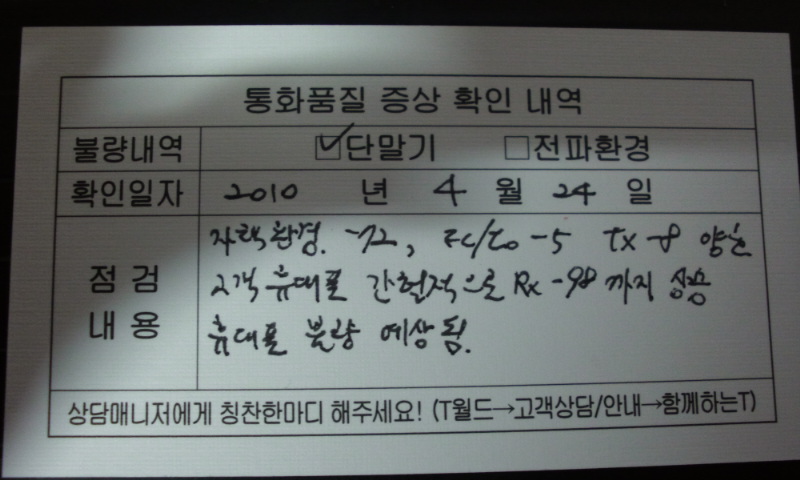 통화품질 증상 확인 내역
불량내역 ☑단말기 □전파환경
확인일자 2010 년 4 월 24 일
점검 내용
자택환경. -72, Ec/Io -5 Tx -8 양호
고객 휴대폰 간헐적으로 Rx -98 까지 상승
휴대폰 불량 예상됨.
상담매니저에게 칭찬한마디 해주세요! (T월드→고객상담/안내→함께하는T)